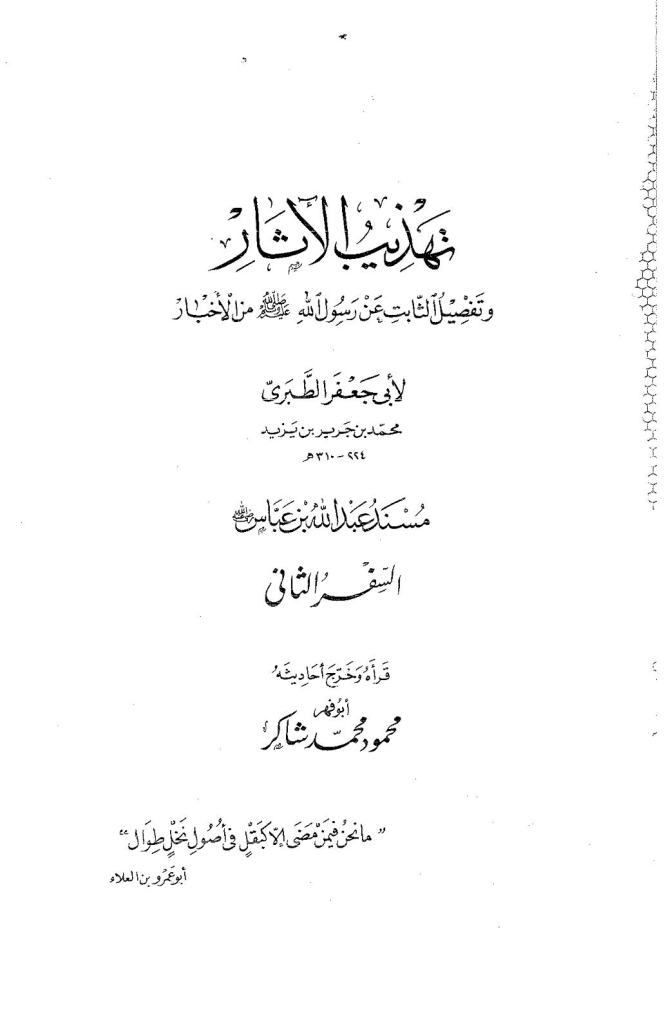 تهذيب الآثار
وتفصيل الثابت عن رسول الله ﷺ من الأخبار
لأبي جعفر الطبري
محمد بن جرير بن يزيد
٢٢٤ - ٣١٠ هـ
مسند عبد الله بن عباس
السفر الثاني
قرأه وخرج أحاديثه
أبو فهر
محمود محمد شاكر
" ما نحن فيمن مضى إلا كبقل في أصول نخل طوال "
أبو عمرو بن العلاء